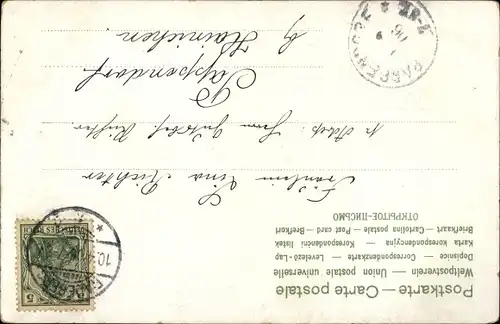 Postkarte — Carte postale
Weltpostverein — Union postale universelle
Dopisnice — Correspondenzkarte — Levelező-Lap
Karta korespondencyjna — Korespondenční listek
Briefkaart — Cartolina postale — Post card — Brefkort
ОТКРЫТОЕ-ПИСЬМО
Fräulein Lina Richter
p. Adr: Herrn Gutsbes. Richter
Pappendorf
b/ Hainichen
PAPPENDORF
DEUTSCHES REICH
5